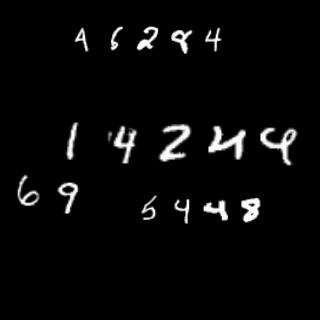 4 6 2 8 4
1 4 2 4 4
6 9
5 4 4 8